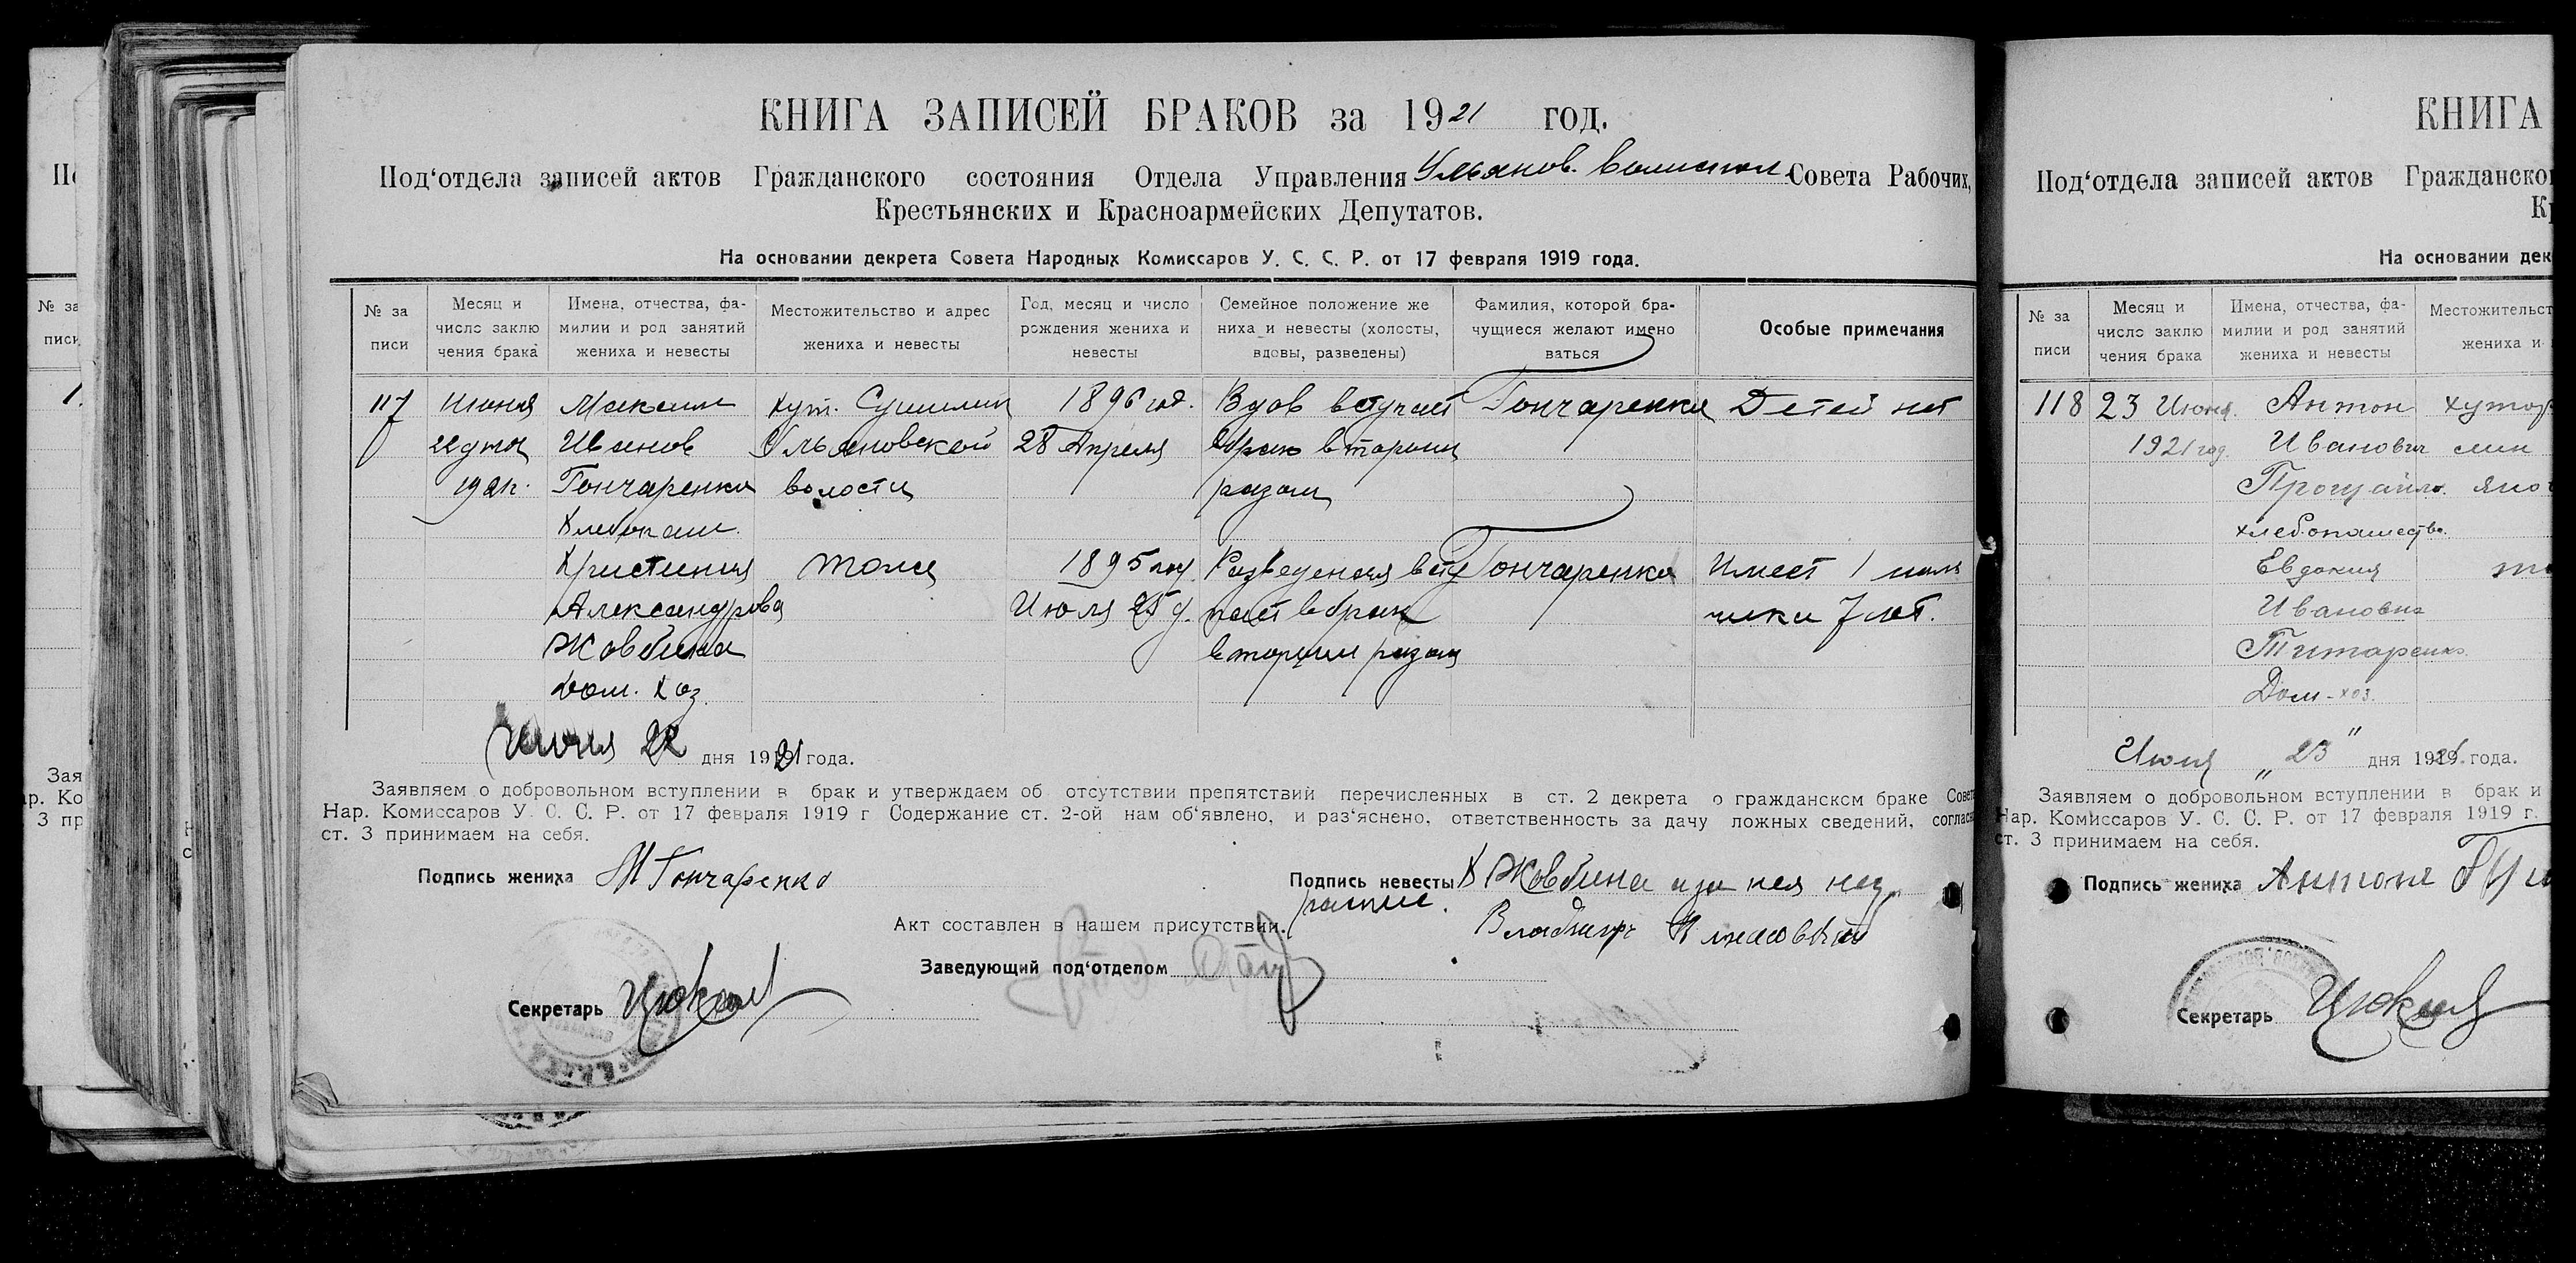 КНИГА ЗАПИСЕЙ БРАКОВ за 1921 год.
Под‘отдела записей актов Гражданского состояния Отдела Управления Ульянов. Совета Рабочих,
Крестьянских и Красноармейских Депутатов.
На основании декрета Совета Народных Комиссаров У. С. С. Р. от 17 февраля 1919 года.
№ за писи
Месяц и число заклю чения брака
Имена, отчества, фа- милии и род занятий жениха и невесты
Местожительство и адрес жениха и невесты
Год, месяц и число рождения жениха и невесты
Семейное положение же ниха и невесты (холосты, вдовы, разведены)
Фамилия, которой бра- чущиеся желают имено ваться
Особые примечания
117 Июня Максим хут. 1896 год. Вдов вступает Гончаренко Детей нет
22 дня Иванов Ульяновской 28 Апреля вбрак вторым
1921г. Гончаренко волости разом
Хлебопаш.
Христиния тоже 1895 год Разведеная всту Гончаренко Имеет 1 маль
Александрова Июля 25 д. пает вбрак чика 7 лет.
Жовбина вторым разом
дом. хоз.
Июня 22 дня 1921 года.
Заявляем о добровольном вступлении в брак и утверждаем об отсутствии препятствий перечисленных в ст. 2 декрета о гражданском браке Совета
Нар. Комиссаров У. С. С. Р. от 17 февраля 1919 г Содержание ст. 2-ой нам об‘явлено, и раз‘яснено, ответственность за дачу ложных сведений, согласн
ст. 3 принимаем на себя.
Подпись жениха М Гончаренко
Подпись невесты Х Жовбина а за нея нег
Акт составлен в нашем присутствии.
Владимир
Заведующий под‘отделом
Секретарь
КНИГА
Под‘отдела записей актов Гражданско
Кр
На основании дек
№ за писи
Месяц и число заклю чения брака
Имена, отчества, фа- милии и род занятий жениха и невесты
Местожительст жениха и
118 23 Июня. Антон хутор
1921 год. Иванович
хлебопашество.
Евдокия
Ивановна
Титаренко.
Дом-хоз.
Июня „23" дня 1921 года.
Заявляем о добровольном вступлении в брак и
Нар. Комиссаров У. С. С. Р. от 17 февраля 1919 г.
ст. 3 принимаем на себя.
Подпись жениха Антон
Секретарь